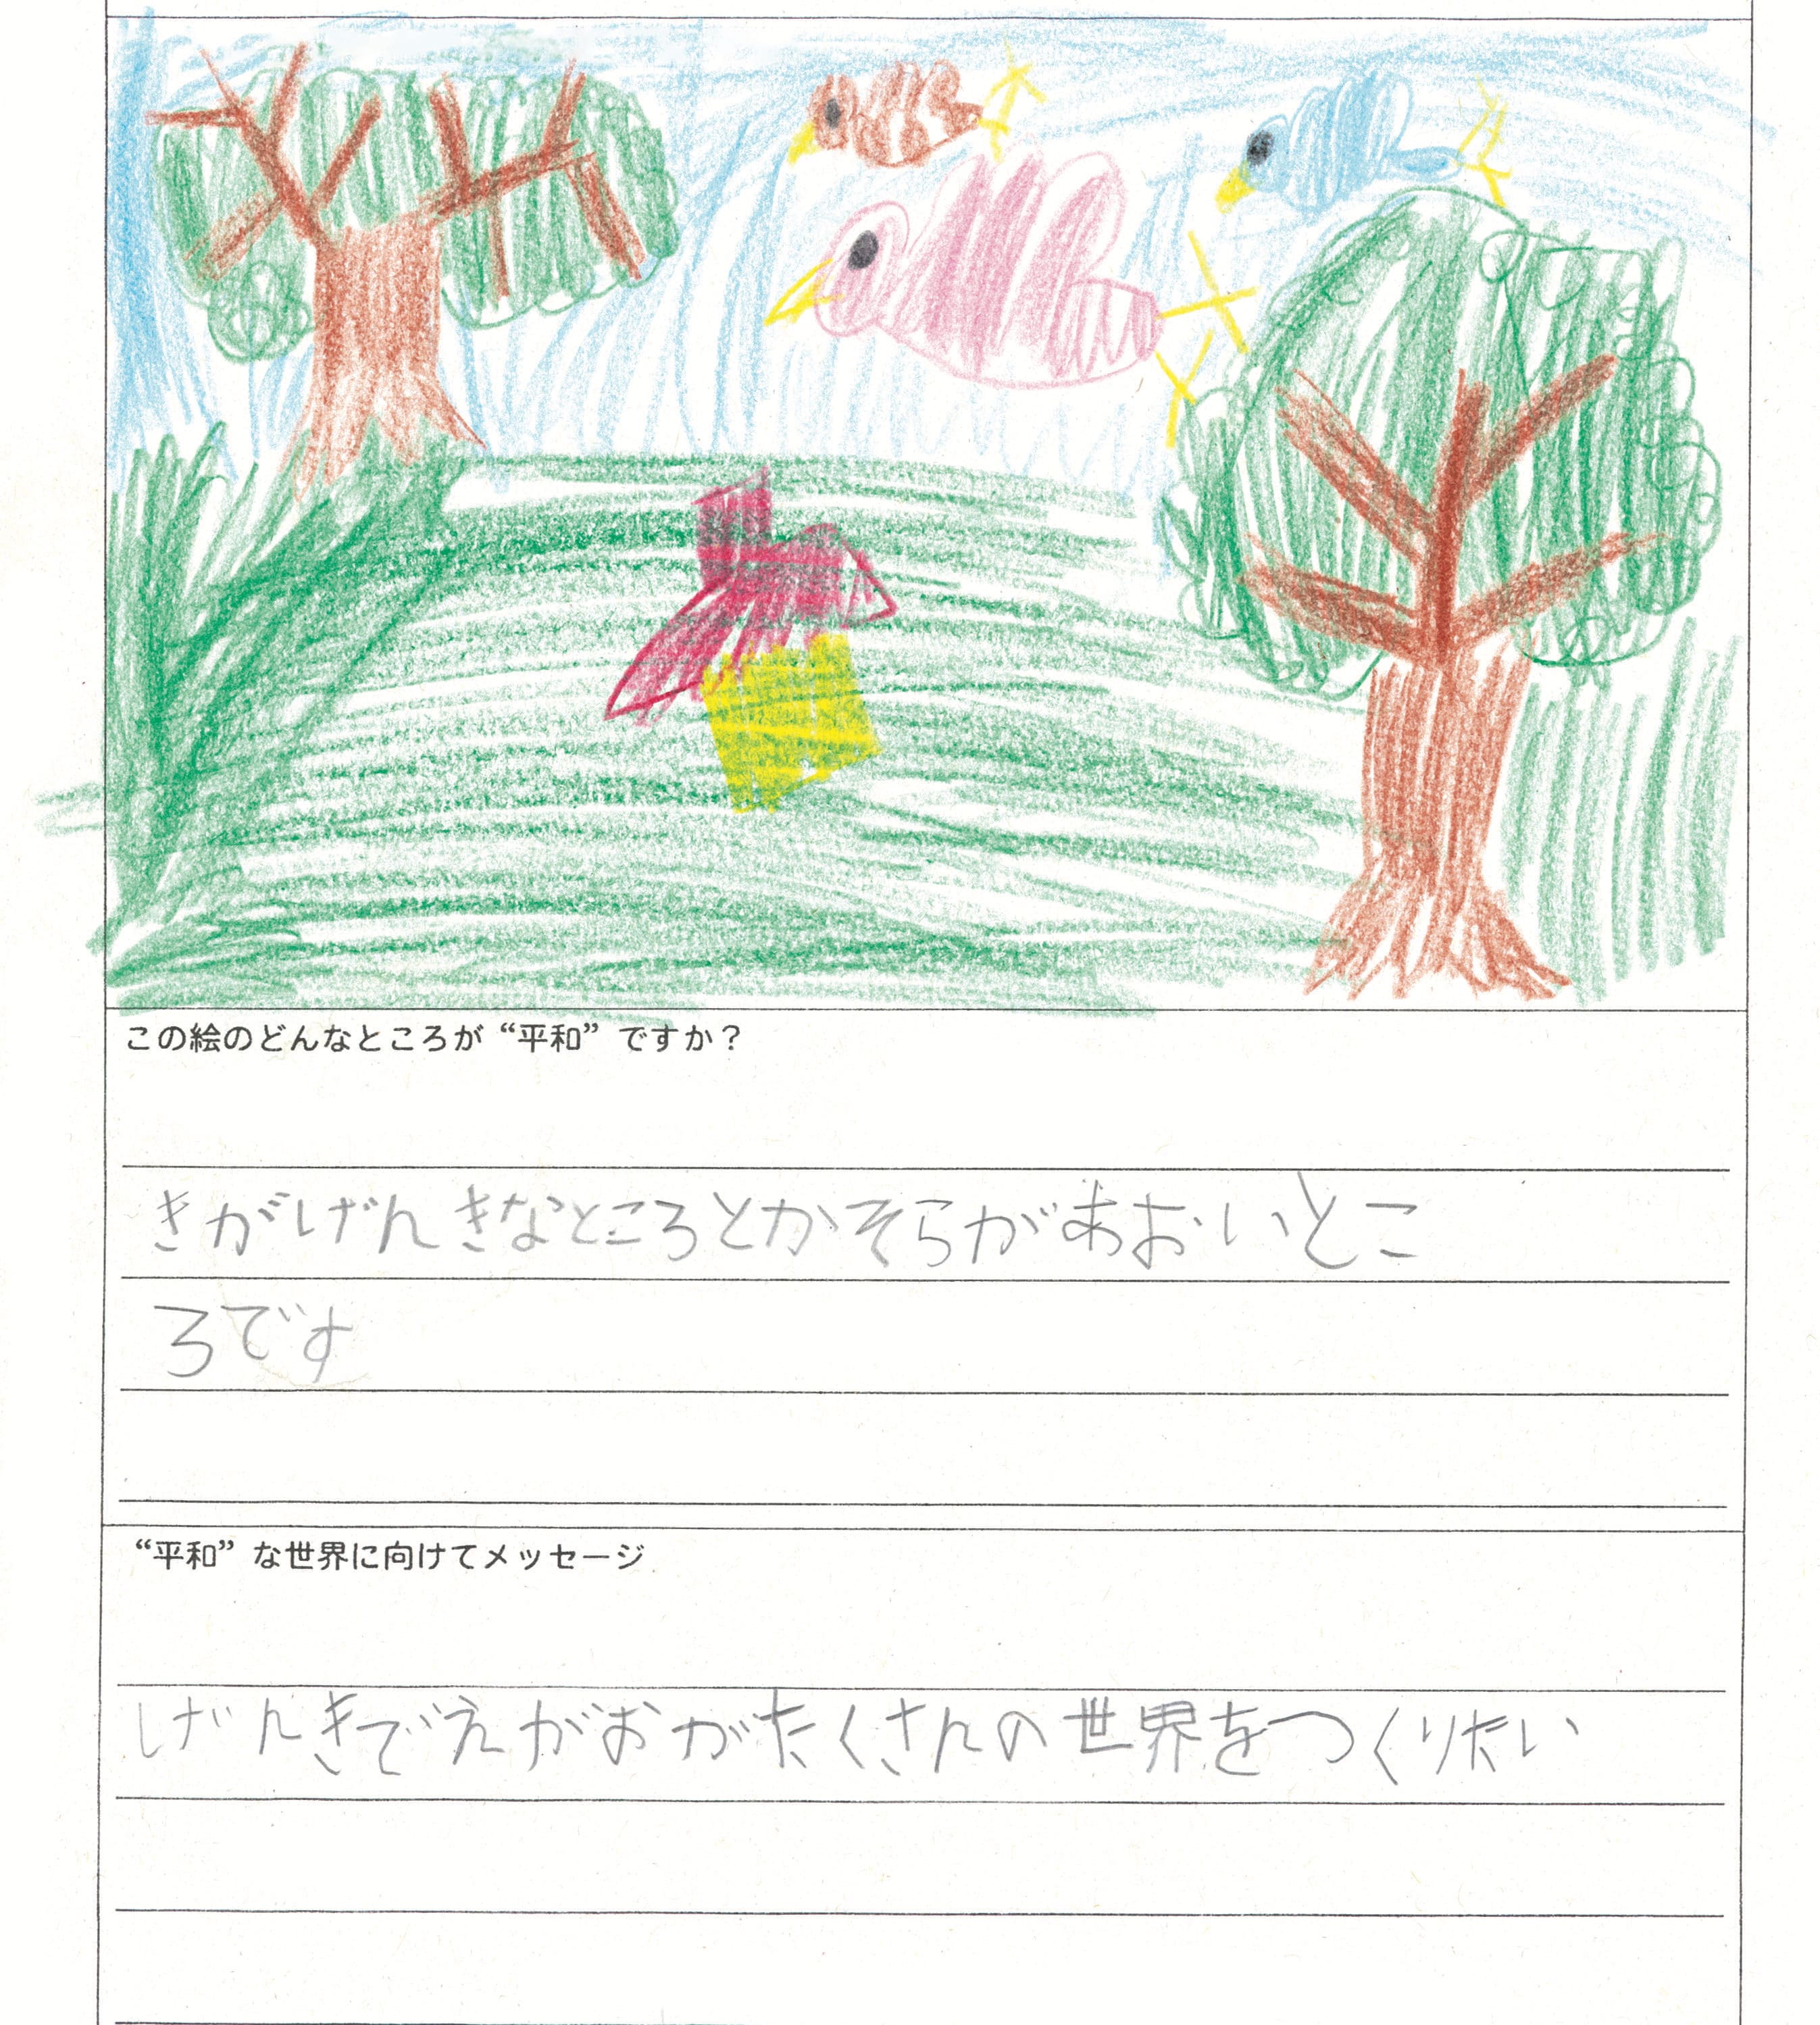 この絵のどんなところが“平和”ですか？
きがげんきなところとかそらがあおいとこ
ろです
“平和”な世界に向けてメッセージ
げんきでえがおがたくさんの世界をつくりたい